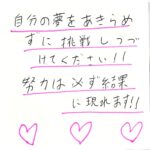 自分の夢をあきらめ
ずに挑戦しつづ
けてください!!
努力は必ず結果
に現れます!!